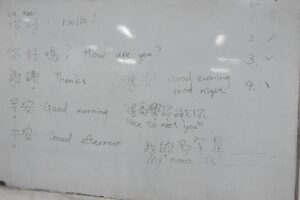 你好! Hello!
你好嗎? How are you?
謝謝! Thanks
晚安 Good evening
Good night
早安 Good morning
很高興認識你
Nice to meet you
午安 Good afternoon
我的名字是
My name is
1.
2. ✓
3. ✓
4.